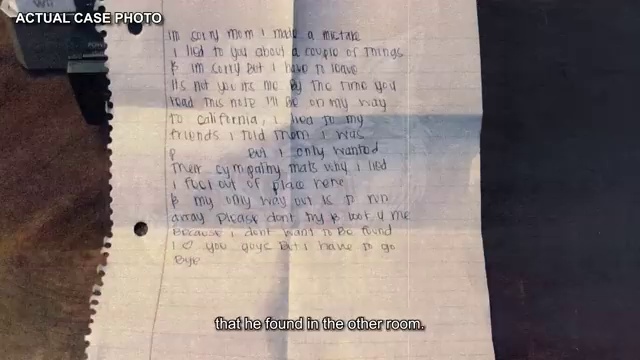 ACTUAL CASE PHOTO
Im sorry mom I made a mistake
I lied to you about a couple of things
& im sorry but I have to leave
its not you its me by the time you
read this note I'll be on my way
to california, I lied to my
friends I told them I was
But I only wanted
their sympathy thats why I lied
I feel out of place here
& my only way out is to run
away please dont try & look 4 me
because I dont want to be found
I <3 you guys but I have to go
Bye
that he found in the other room.